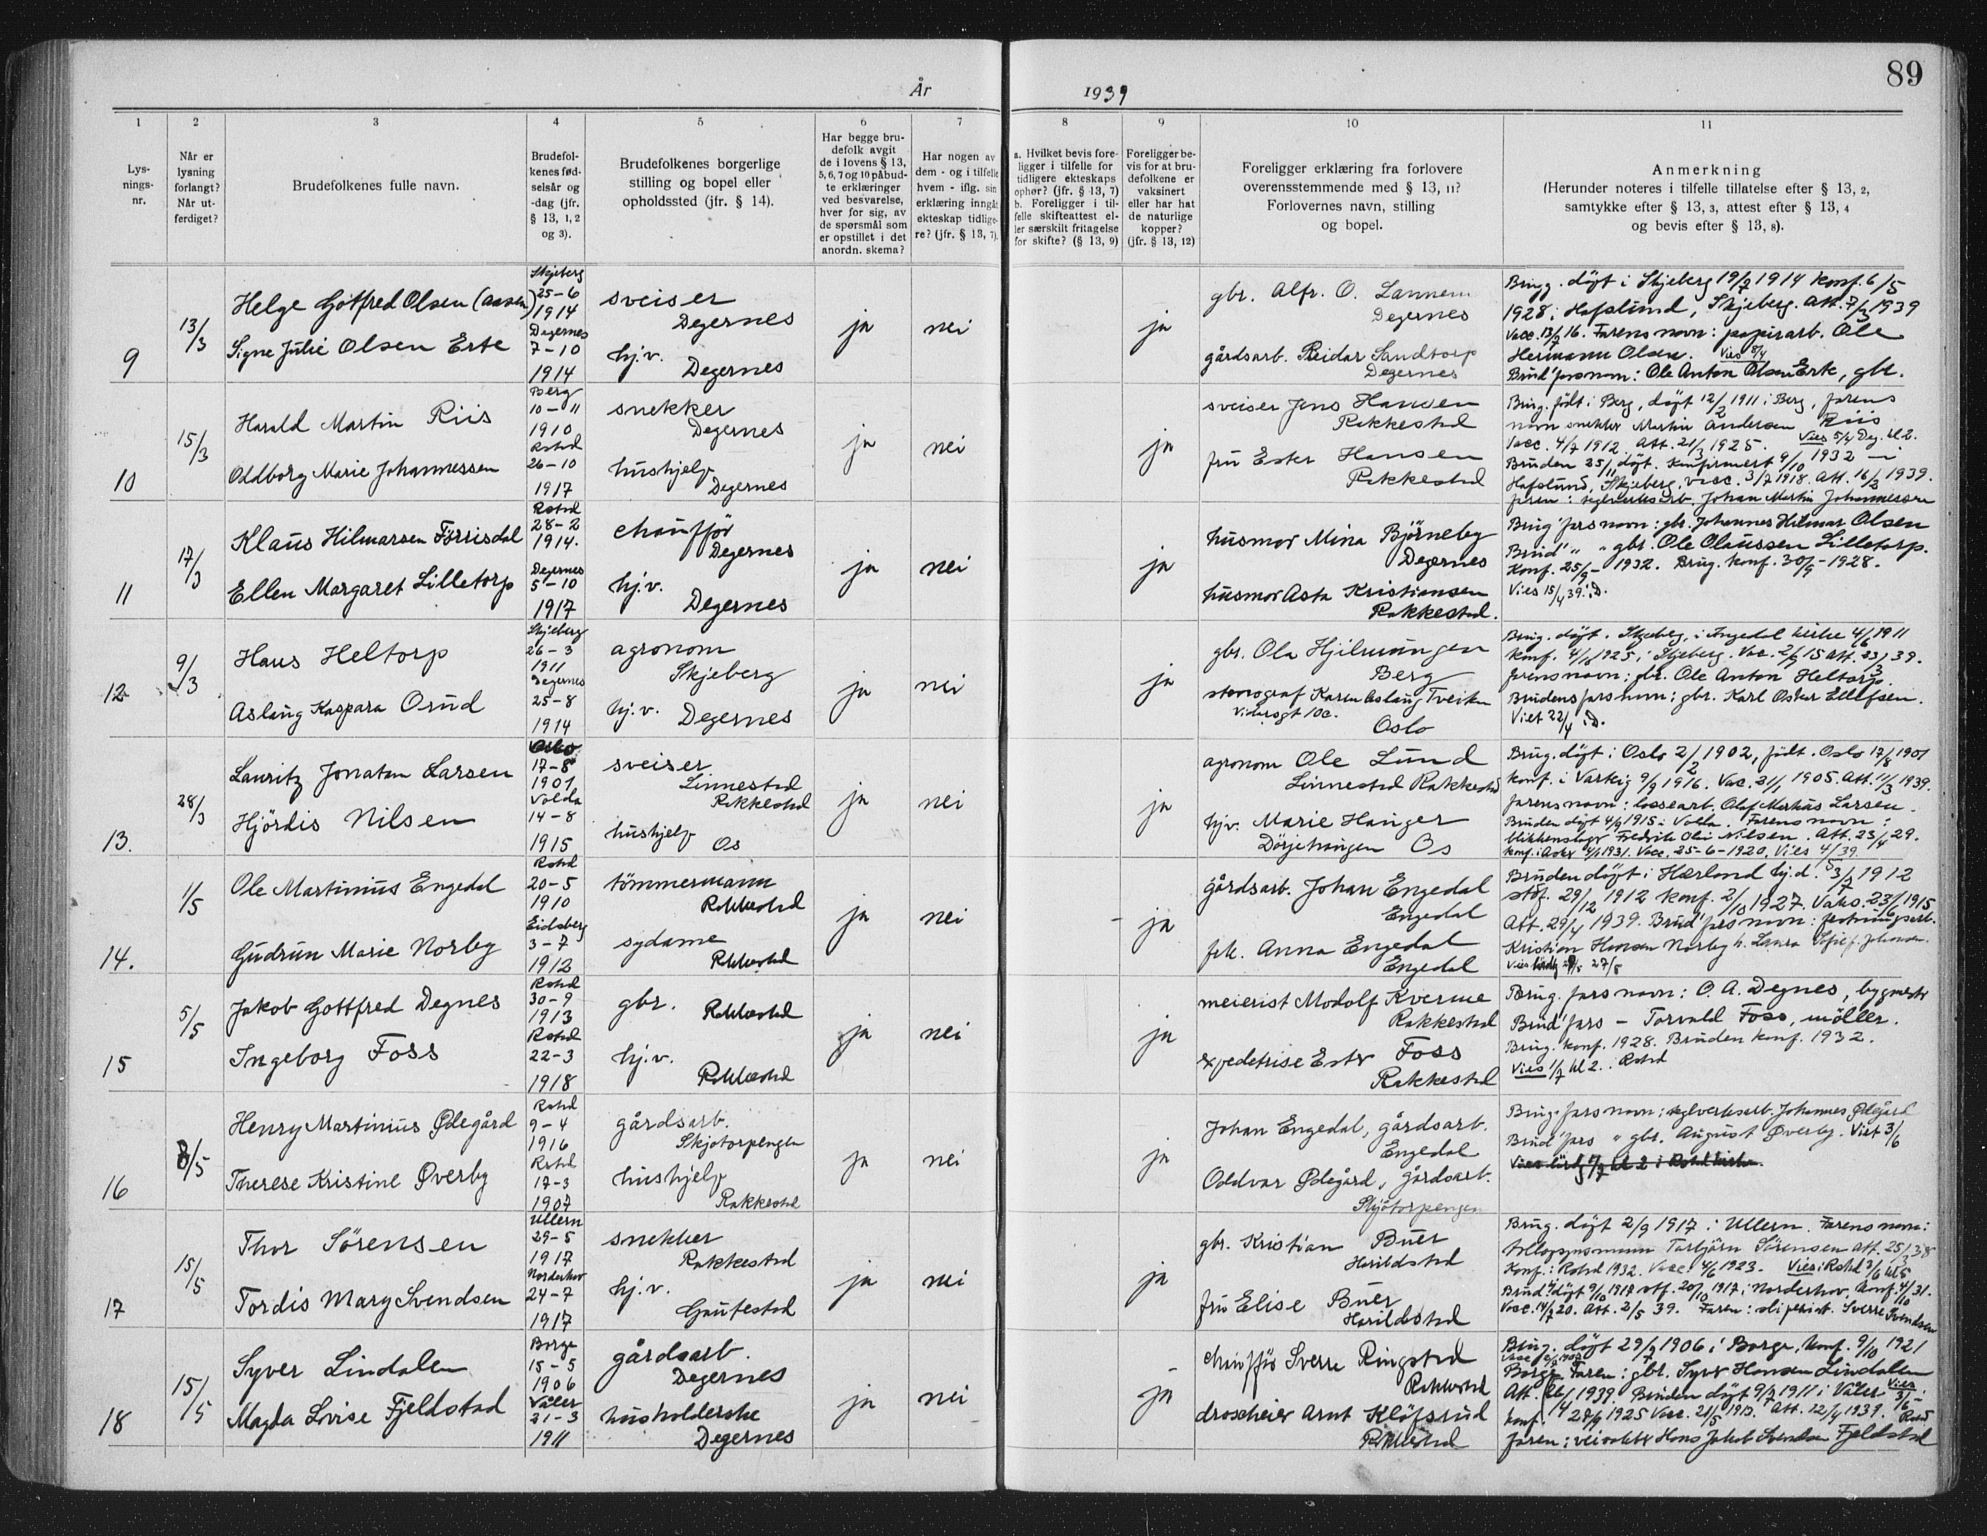 89
År 1939
1 2 3 4 5 6 7 8 9 10 11
Lysnings-nr.
Når er lysning forlangt? Når utferdiget?
Brudefolkenes fulle navn.
Brudefolkenes fødselsår og -dag (jfr. § 13, 1, 2 og 3).
Brudefolkenes borgerlige stilling og bopel eller opholdssted (jfr. § 14).
Har begge brudefolk avgit de i lovens § 13, 5, 6, 7 og 10 påbudte erklæringer ved besvarelse, hver for sig, av de spørsmål som er opstillet i det anordn. skema?
Har nogen av dem - og i tilfelle hvem - iflg. sin erklæring inngåt ekteskap tidligere? (jfr. § 13, 7).
a. Hvilket bevis foreligger i tilfelle for tidligere ekteskaps ophør? (jfr. § 13, 7) b. Foreligger i tilfelle skifteattest eller særskilt fritagelse for skifte? (§ 13, 9)
Foreligger bevis for at brudefolkene er vaksinert eller har hat de naturlige kopper? (jfr. § 13, 12)
Foreligger erklæring fra forlovere overensstemmende med § 13, 11? Forlovernes navn, stilling og bopel.
Anmerkning (Herunder noteres i tilfelle tillatelse efter § 13, 2, samtykke efter § 13, 3, attest efter § 13, 4 og bevis efter § 13, 8).
9
13/3
Helge Gotfred Olsen (Aasen)
Signe Julie Olsen Erte
Skjeberg
25-6
1914
Degernes
7-10
1914
sveiser
Degernes
hj.v.
Degernes
ja
nei
ja
gbr. Alfr. O. Lannem
Degernes
gårdsarb. Reidar Sandtorp
Degernes
Brugg. døpt i Skjeberg 19/7 1914 konf. 6/5
1928 i Hafslund, Skjeberg. Att. 7/3 1939
Vacc. 13/7 16. Farens navn: papirarb. Ole
Hermann Olsen. Vies 8/4
Brud' fars navn: Ole Anton Olsen Erte, gbr.
10
15/3
Harald Martin Riis
Oldborg Marie Johannessen
Berg
10-11
1910
Rakst
26-10
1917
snekker
Degernes
hushjelp
Degernes
ja
nei
ja
sveiser Jens Hansen
Rakkestad
fru Ester Hansen
Rakkestad
Brug. født i Berg, døpt 12/2 1911 i Berg, farens
navn snekker Martin Andersen Riis
Vacc. 4/7 1912. Att. 21/3 1925. Vies 5/4 Deg. kl 2.
Bruden 25/11 døpt. Konfirmert 9/10 1932 i
Hafslund, Skjeberg, vacc. 3/7 1918. Att. 16/3 1939.
Faren: teglverksarb. Johan Martin Johannessen
11
17/3
Klaus Hilmarsen Förrisdal
Ellen Margaret Lilletorp
Rakst
28-2
1914.
Degernes
5-10
1917
chauffør
Degernes
hj.v.
Degernes
ja
nei
ja
husmor Mina Björneby
Degernes
husmor Asta Kristiansen
Rakkestad.
Brug' fars navn: gbr. Johannes Hilmar Olsen
Brud' " " gbr. Ole Olaussen Lilletorp.
Konf. 25/9 - 1932. Brug. konf. 30/9 - 1928.
Vies 15/4 39 i D.
12
9/3
Hans Heltorp
Aslaug Kaspara Osud
Skjeberg
26-3
1911
Degernes
25-8
1914
agronom
Skjeberg
hj.v.
Degernes
ja
nei
ja
gbr. Ola Hjilmungen
Berg
stenograf Karen Aslaug Tveiten
Oslo
Brug. døpt. Skjeberg, i Ingedal kirke 4/6 1911
Konf. 4/10 1925, i Skjeberg. Vac. 2/9 15 Att. 23/3 39.
Farens navn: gbr. Ole Anton Heltorp.
Brudens fars navn: gbr. Karl Oskar Ellefsen.
Viet 22/4 i D.
13.
28/3
Lauritz Jonatan Larsen
Hjördis Nilsen
Oslo
17-8
1901
Volda
14-8
1915
sveiser
Linnestad
Rakkestad
hushjelp
Os
ja
nei
ja
agronom Ole Lund
Linnestad Rakkestad
hjv. Marie Hanger
Dörjehangen Os
Brug. døpt i Oslo 2/2 1902, født. Oslo 17/8 1901
konf. i Varteig 9/9 1916. Vac. 21/1 1905. Att. 11/3 1939.
Farens navn: lossearb. Olaf Markus Larsen.
Bruden døpt 4/9 1915 i Volda. Farens navn:
blikkenslager Fredrik Olai Nilsen. Att. 23/4 29.
Vacc. 25-6-1920.
14.
1/5
Ole Martinius Engedal
Gudrun Marie Norby
Rakst
20-5
1910
Eidsberg
3-7
1912
tömmermann
Rakkestad
sydame
Rakkestad
ja
nei
- ja
gårdsarb. Johan Engedal
Engedal
frk. Anna Engedal
Engedal
Bruden døpt i Hærland hj.d. 3/7 1912
stdf. 29/12 1912 konf. 2/10 1927. Vaks. 23/6 1915
Att. 29/4 1939. Brud' fars navn: festningsarb.
Kristian Hansen Norby h. Laura Sofie f. Johansen.
27/5
15
5/5
Jakob Gottfred Degnes
Ingeborg Foss
Rakst
30-9
1913
Rakst
22-3
1918
gbr.
Rakkestad
hj.v.
Rakkestad
ja
nei
ja
meierist Modolf Kverme
Rakkestad
expedetrise Ester Foss
Rakkestad
Brug. fars navn: O. A. Degnes, bygmester
Brud' fars - Torvald Foss, möller.
Brug. konf. 1928. Bruden konf. 1932.
Vies 1/7 kl 2. i Rakst
16
8/5
Henry Martinius Ødegård
Therese Kristine Øverby
Rakst
9-4
1916
Rakst
17-3
1907
gårdsarb.
Skjøtorpengen
hushjelp
Rakkestad
ja
nei
ja
Johan Engedal, gårdsarb.
Engedal
Oddvar Ødegård, gårdsarb.
Skjøtorpengen
Brug. fars navn: teglverksarb. Johannes Ødegård
Brud' fars " gbr. August Øverby. Viet 3/6
17
15/5
Thor Sörensen
Tordis Mary Svendsen
Ullern
29-5
1917
Norderhov
24-7
1917
snekker
Rakkestad
hj.v.
Gautestad
ja
nei
ja
gbr. Kristian Buer
Harildstad
fru Elise Buer
Harildstad
Brug. døpt 2/9 1917 i Ullern. Farens navn:
tollopsynsmann Torbjörn Sörensen Att. 25/3 38
Konf. i Rakst 1932. Vacc. 4/6 1923. Vies i Rakst 3/6 kl 5
Brud' døpt 9/10 1917 stf. 20/10 1917 i Norderhov. Konf. 4/10 31.
Vacc. 14/7 20. Att. 2/5 39. Faren: sliperiarb. Sverre Svendsen
18
15/5
Syver Lindalen
Magda Lovise Fjeldstad
Borge
15-5
1906
Våler
21-3
1911
gårdsarb.
Degernes
husholderske
Degernes
ja
nei
- ja
chauffør Sverre Ringstad
Rakkestad
droscheier Arnt Klöfsrud
Rakkestad
Brug. døpt 29/7 1906 i Borge, konf. 9/10 1921
Borge. Faren: gbr. Syver Hansen Lindalen
Att. 26/4 1939. Bruden døpt 9/7 1911 i Våler
konf. 27/9 1925 Vacc. 21/5 1913. Att. 12/4 1939.
Faren: veivokter Hans Jakob Svendsen Fjeldstad